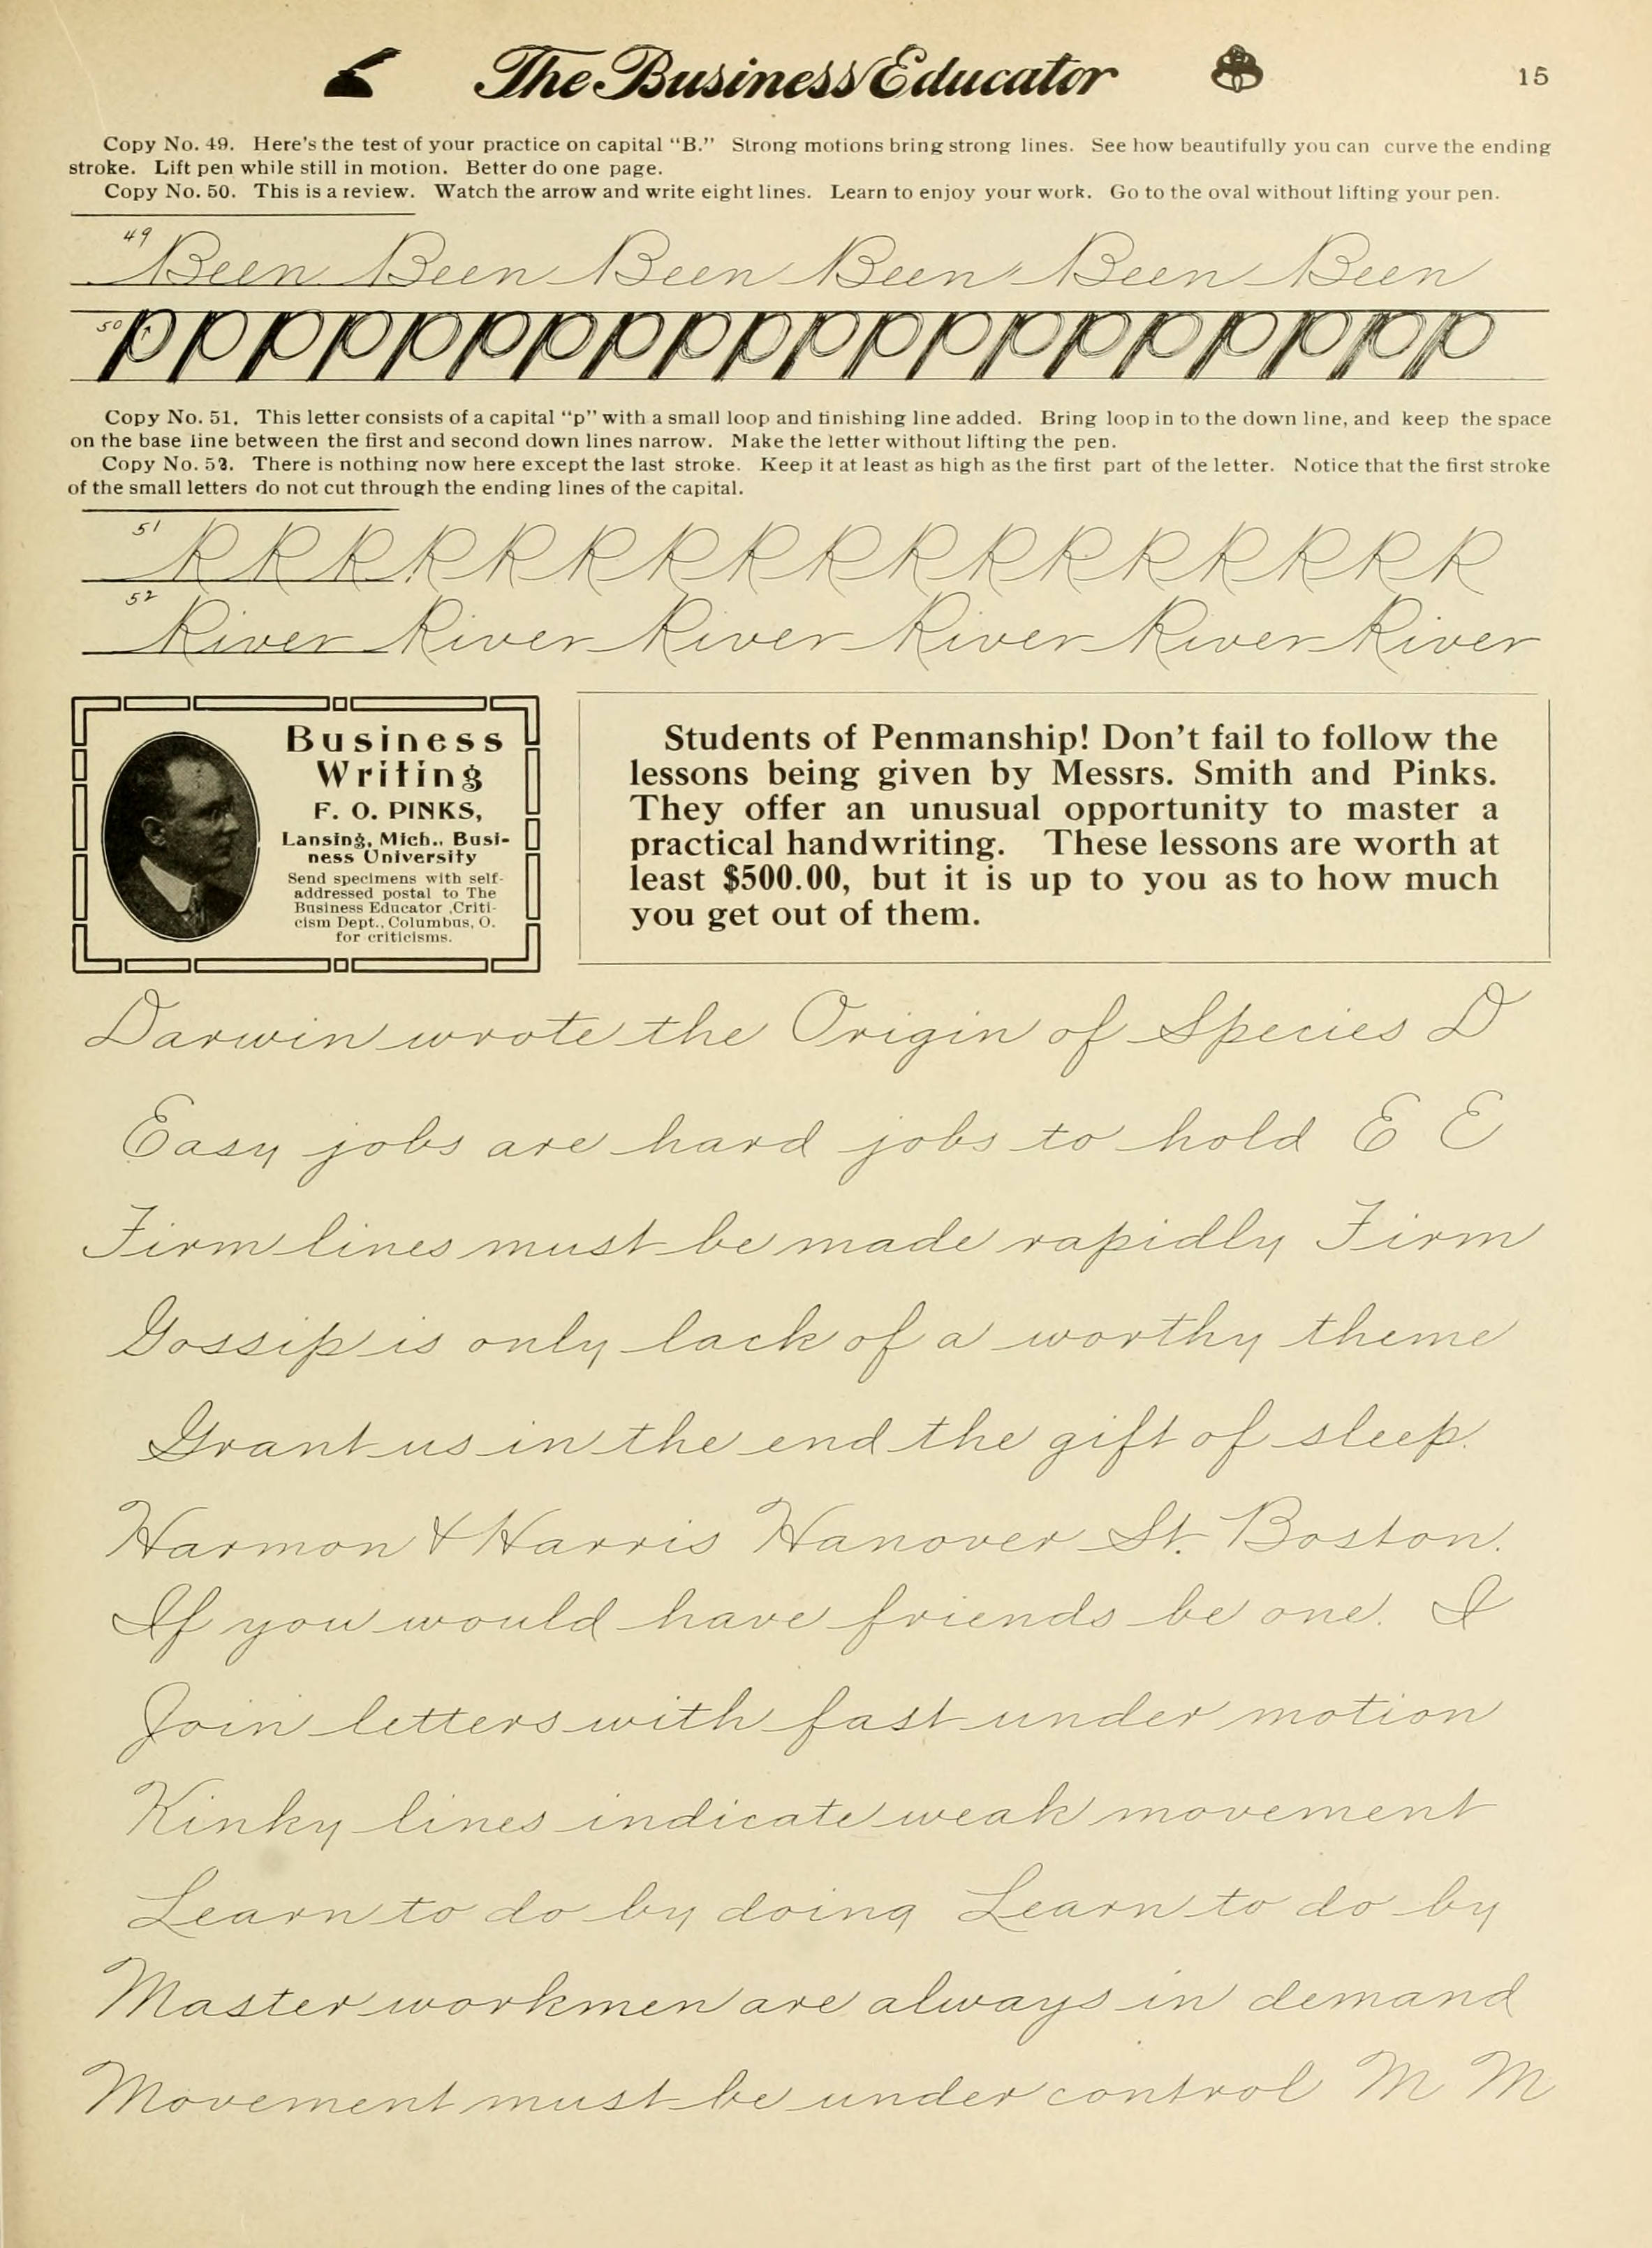 The Business Educator
15
Copy No. 49. Here's the test of your practice on capital "B." Strong motions bring strong lines. See how beautifully you can curve the ending
stroke. Lift pen while still in motion. Better do one page.
Copy No. 50. This is a review. Watch the arrow and write eight lines. Learn to enjoy your work. Go to the oval without lifting your pen.
49 Been Been Been Been Been Been
50 P P P P P P P P P P P P P P P P P P P P
Copy No. 51. This letter consists of a capital "p" with a small loop and finishing line added. Bring loop in to the down line, and keep the space
on the base line between the first and second down lines narrow. Make the letter without lifting the pen.
Copy No. 52. There is nothing now here except the last stroke. Keep it at least as high as the first part of the letter. Notice that the first stroke
of the small letters do not cut through the ending lines of the capital.
51 R R R R R R R R R R R R R R R R R
52 River River River River River River
Business
Writing
F. O. PINKS,
Lansing, Mich., Busi-
ness University
Send specimens with self-
addressed postal to The
Business Educator ,Criti-
cism Dept., Columbus, O.
for criticisms.
Students of Penmanship! Don't fail to follow the
lessons being given by Messrs. Smith and Pinks.
They offer an unusual opportunity to master a
practical handwriting. These lessons are worth at
least $500.00, but it is up to you as to how much
you get out of them.
Darwin wrote the Origin of Species D
Easy jobs are hard jobs to hold E E
Firm lines must be made rapidly Firm
Gossip is only lack of a worthy theme
Grant us in the end the gift of sleep.
Harmon & Harris Hanover St. Boston.
If you would have friends be one. I
Join letters with fast under motion
Kinky lines indicate weak movement
Learn to do by doing Learn to do by
Master workmen are always in demand
Movement must be under control M M